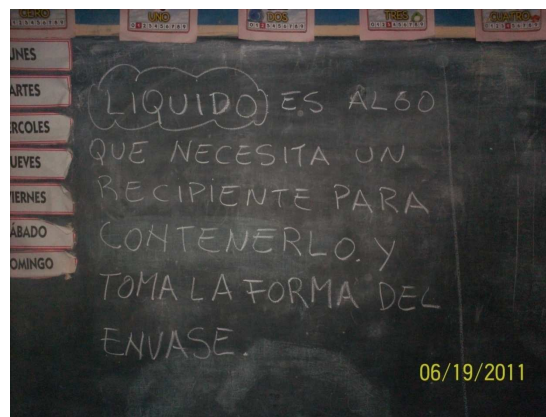 CERO
UNO
DOS
TRES
CUATRO
UNES
ARTES
ÉRCOLES
UEVES
IERNES
ÁBADO
OMINGO
LIQUIDO ES ALGO
QUE NECESITA UN
RECIPIENTE PARA
CONTENERLO. Y
TOMA LA FORMA DEL
ENVASE.
06/19/2011